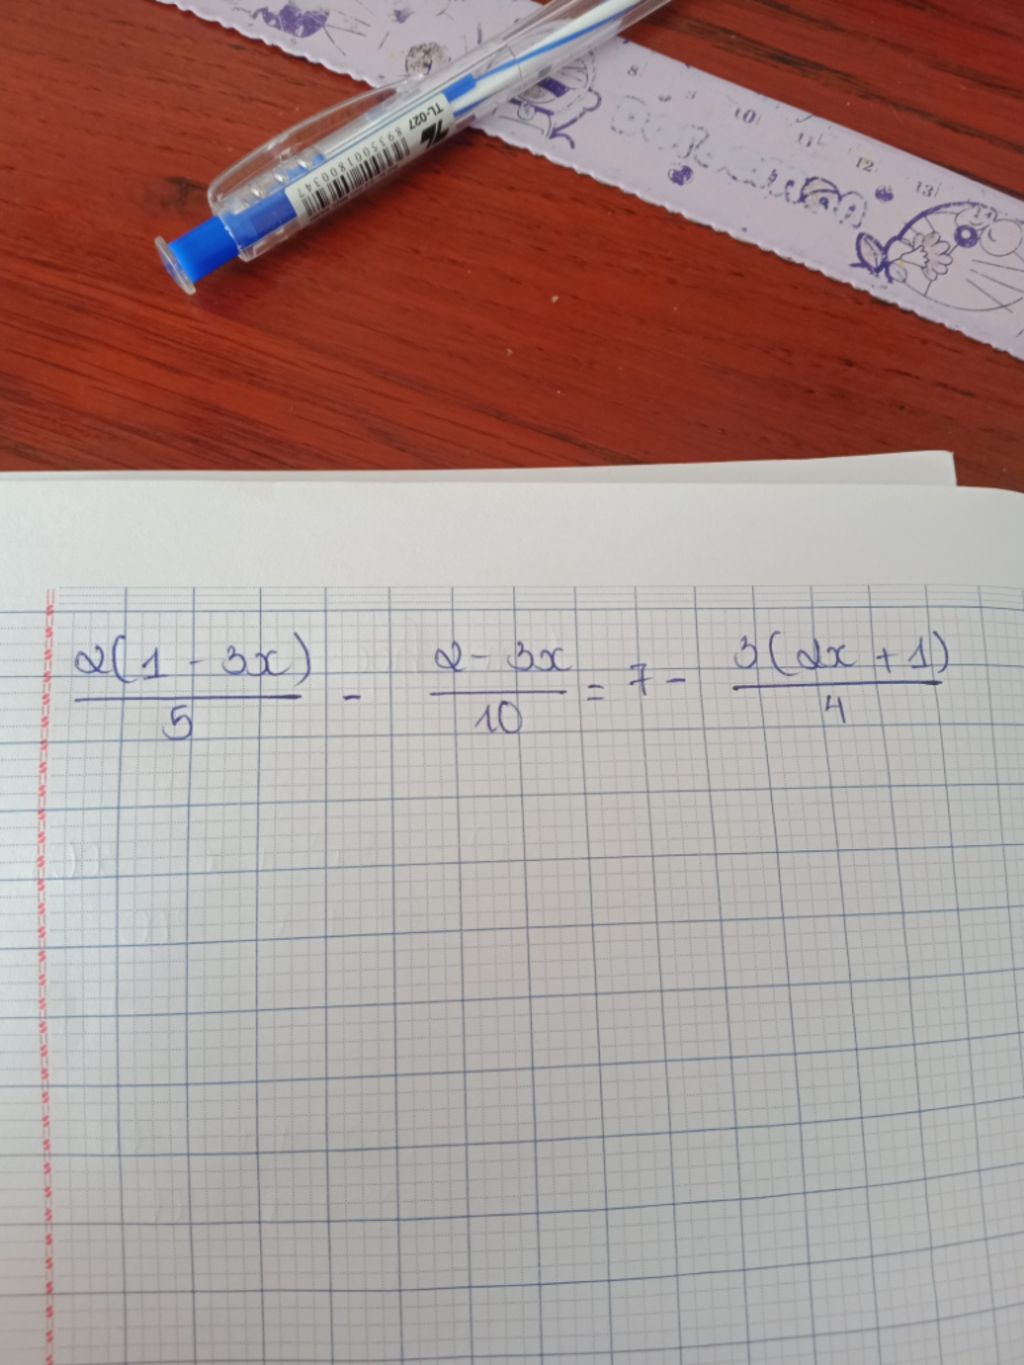 TL-027
8935001800347
8 9 10 11 12 13
Doraemon
2(1 - 3x)/5 - (2 - 3x)/10 = 7 - 3(2x + 1)/4